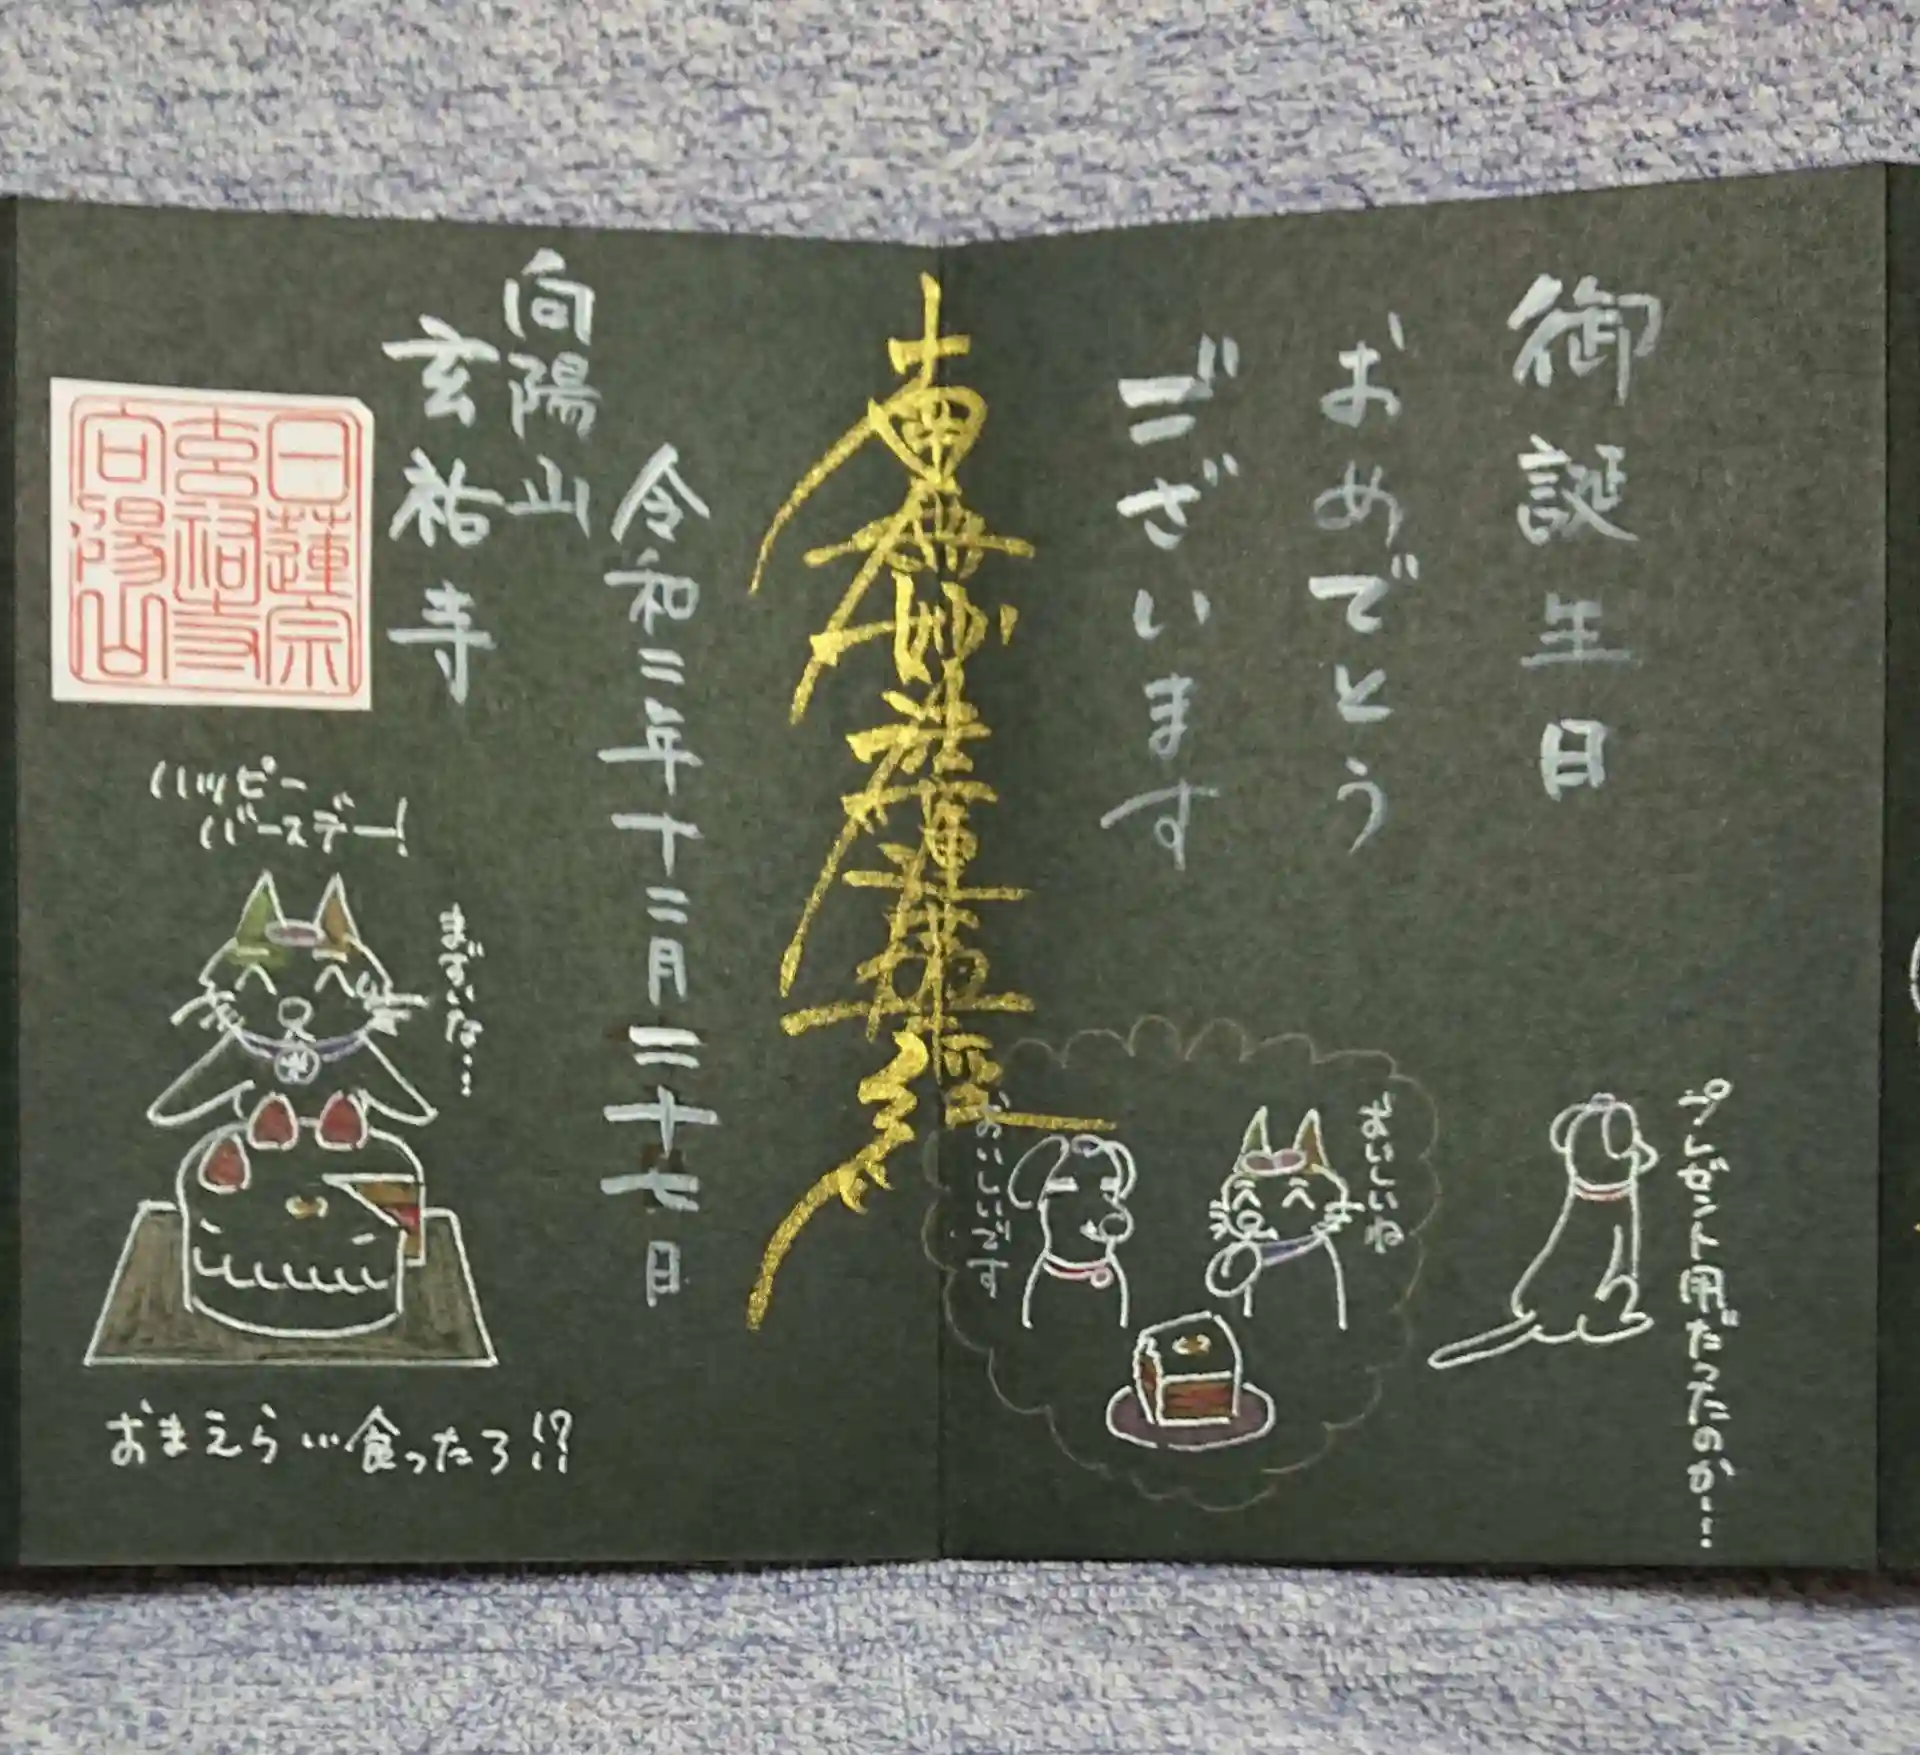 御誕生日
おめでとう
ございます
プレゼント用だったのか…
おいしいね
おいしいです
南無妙法蓮華経
令和三年十二月二十七日
向陽山
玄祐寺
日蓮宗
玄祐寺
向陽山
ハッピー
バースデー!
まずいな…
おまえら…食ったろ!?